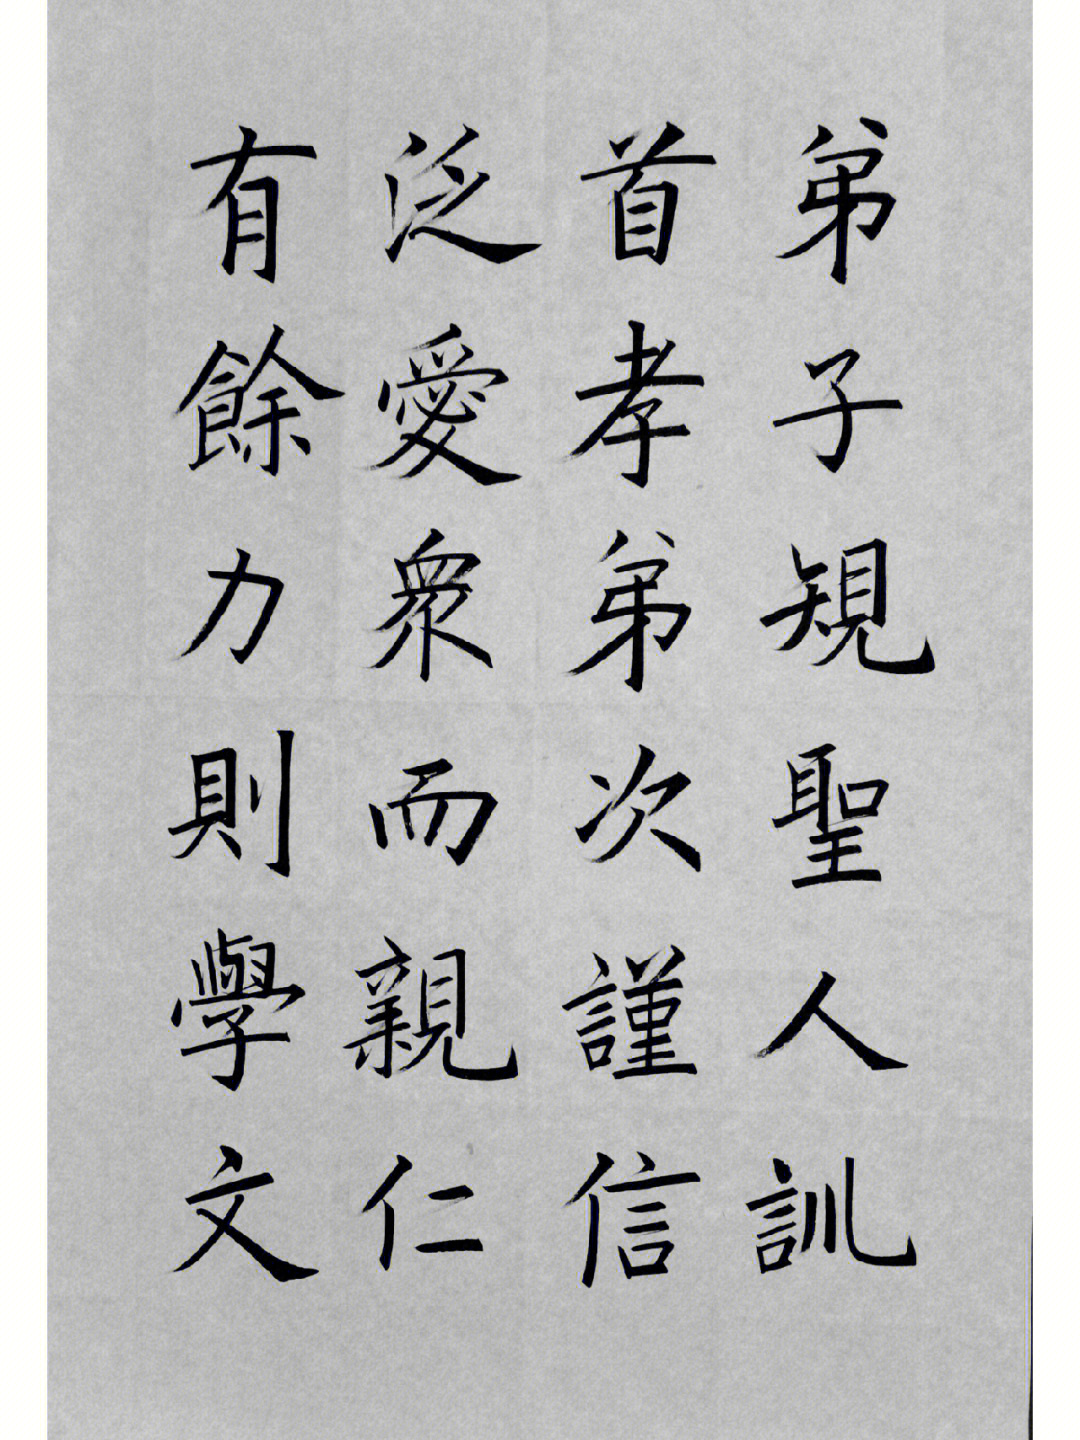 弟子規聖人訓
首孝弟次謹信
泛愛衆而親仁
有餘力則學文